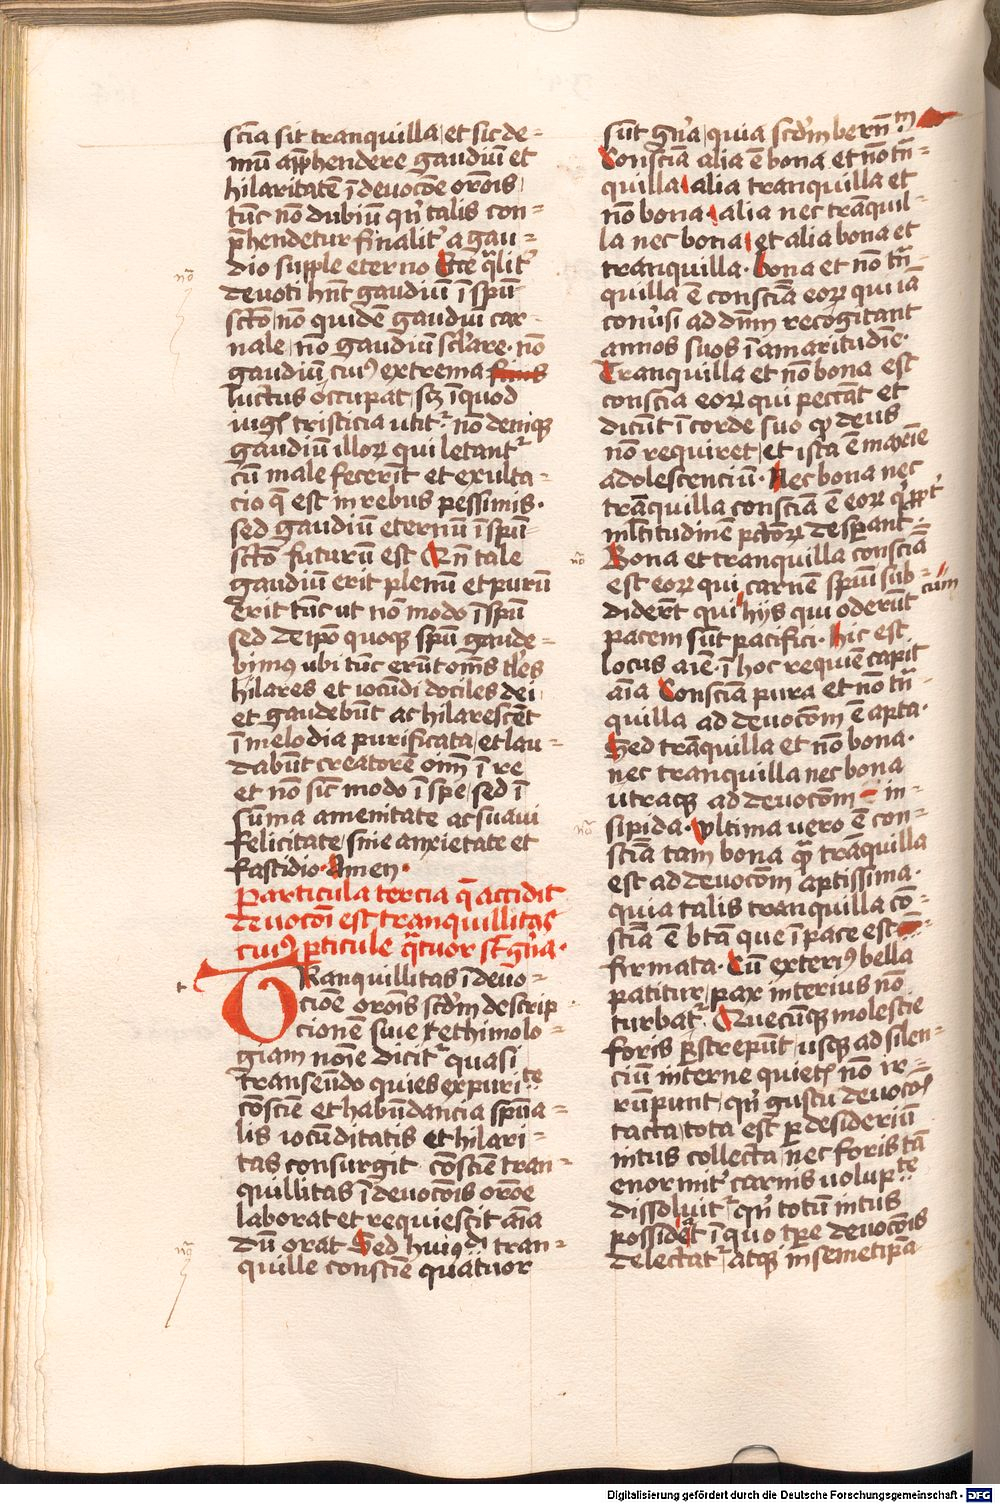 sciā sit tranquilla et sic de-
mū apphendere gaudiū et
hilaritatē ī deuocōe orōis
tūc nō dubiū qn̄ talis con-
p̄hendetur finalit̾ a gau-
dio supple eterno Ecce q̄lit̾
deuoti hn̄t gaudiū ī spū
sctō nō quidē gaudiū car-
nale nō gaudiū sclare· nō
gaudiū cui⁹ extrema
luctus occupat scꝫ ī quod
iugis tristicia utit̾ nō deniqꝫ
gaudiū illoꝝ qui letant̾
cū male fecerīt et exulta-
cio q̄ est in rebus pessimis·
sed gaudiū eternū ī spū
sctō futurū est Qn̄ tale
gaudiū erit plenū et purū
Erit tūc ut nō modo ī spū
sed de ipo quoqꝫ spū gaude-
bim⁹ ubi tūc erūt oms tles
hilares et iocūdi dociles dei
et gaudebūt ac hilarescēt
ī melodia purificata et lau-
dabūt creatorē oim̄ ī re
et nō sic modo ī spe sed ī
sūma amenitate ac suaui
felicitate sine anxietate et
fastidio· Amen·
Particula tercia q̄ accidit
deuocōi est tranquillitas
cui⁹ p̄ticule q̄tuor st̄ gn̄a·
TRanquillitas ī deuo-
cioē orōis scdm descrip
cionem siue ethimolo-
giam noīe dicit̾ quasi
transeūdo quies ex puri te
cōsciē et habūdancia spūa-
lis iocūditatis et hilari-
tas consurgit cōsciē tran-
quillitas ī deuocōis orōe
laborat et requiescit aīa
dū orat Sed hui⁹ di tran-
quille consciē quatuor
sūt gn̄a quia scdm bern̄
Consciā alia ē bona et nō tn̄-
quilla alia tranquilla et
nō bona· alia nec trāquil-
la nec bona et alia bona et
tranquilla· Bona et nō tn̄-
quilla ē consciā eoꝝ qui iā
conūsi ad dn̄m recogitant
annos suos ī amaritudie·
Tranquilla et nō bona est
consciā eoꝝ qui peccāt et
dicūt ī corde suo qꝫ deus
nō requiret et ista ē maxīe
adolescenciū· Nec bona nec
trāquilla consciā ē eoꝝ q̄ ppt̾
ml̄titudinē pctōꝝ desperant·
Bona et tranquilla consciā
est eoꝝ qui carnē spūi sub-
diderūt qui cum hijs qui oderūt
pacem sūt pacifici· hic est
locus aīe· ī hoc requiē capit
aīa Consciā pura et nō tn̄
quilla ad deuocōm ē apta·
Sed trāquilla et nō bona·
nec tranquilla nec bona
utraqꝫ ad deuocōm ē in-
sipida· Vltima uero ē con-
sciā tam bona q̄ trāquilla
est ad deuocōm aptissima·
quia talis tranquilla cō-
sciā ē btām que ī pace est
firmata· Cū exteri⁹ bella
patitur pax interius nō
turbat̾ Quecūqꝫ molestie
foris p̄strepūt usqꝫ ad silen-
ciū interne quietis nō ir-
rūpunt qn̄ gustu deuocōis
tacta tota est p̄ desideriū
intus collecta nec foris tā
enormit̾ carnis volup te
dissoluit̾ qn̄ totū intus
possidet ī quo ipe deuocōis
delectat̾ atqꝫ in semetipa
Digitalisierung gefördert durch die Deutsche Forschungsgemeinschaft - DFG